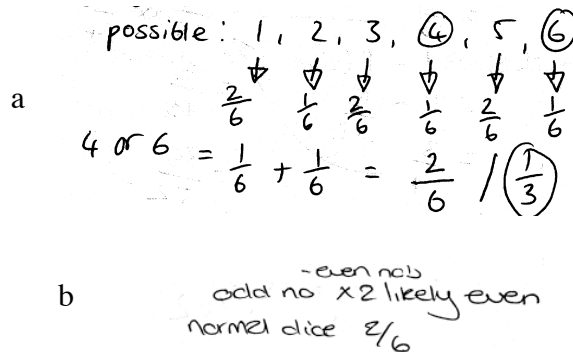 possible: 1, 2, 3, 4, 5, 6
a
2/6 1/6 2/6 1/6 2/6 1/6
4 or 6 = 1/6 + 1/6 = 2/6 / 1/3
-even nos
b odd no x2 likely even
normal dice 2/6